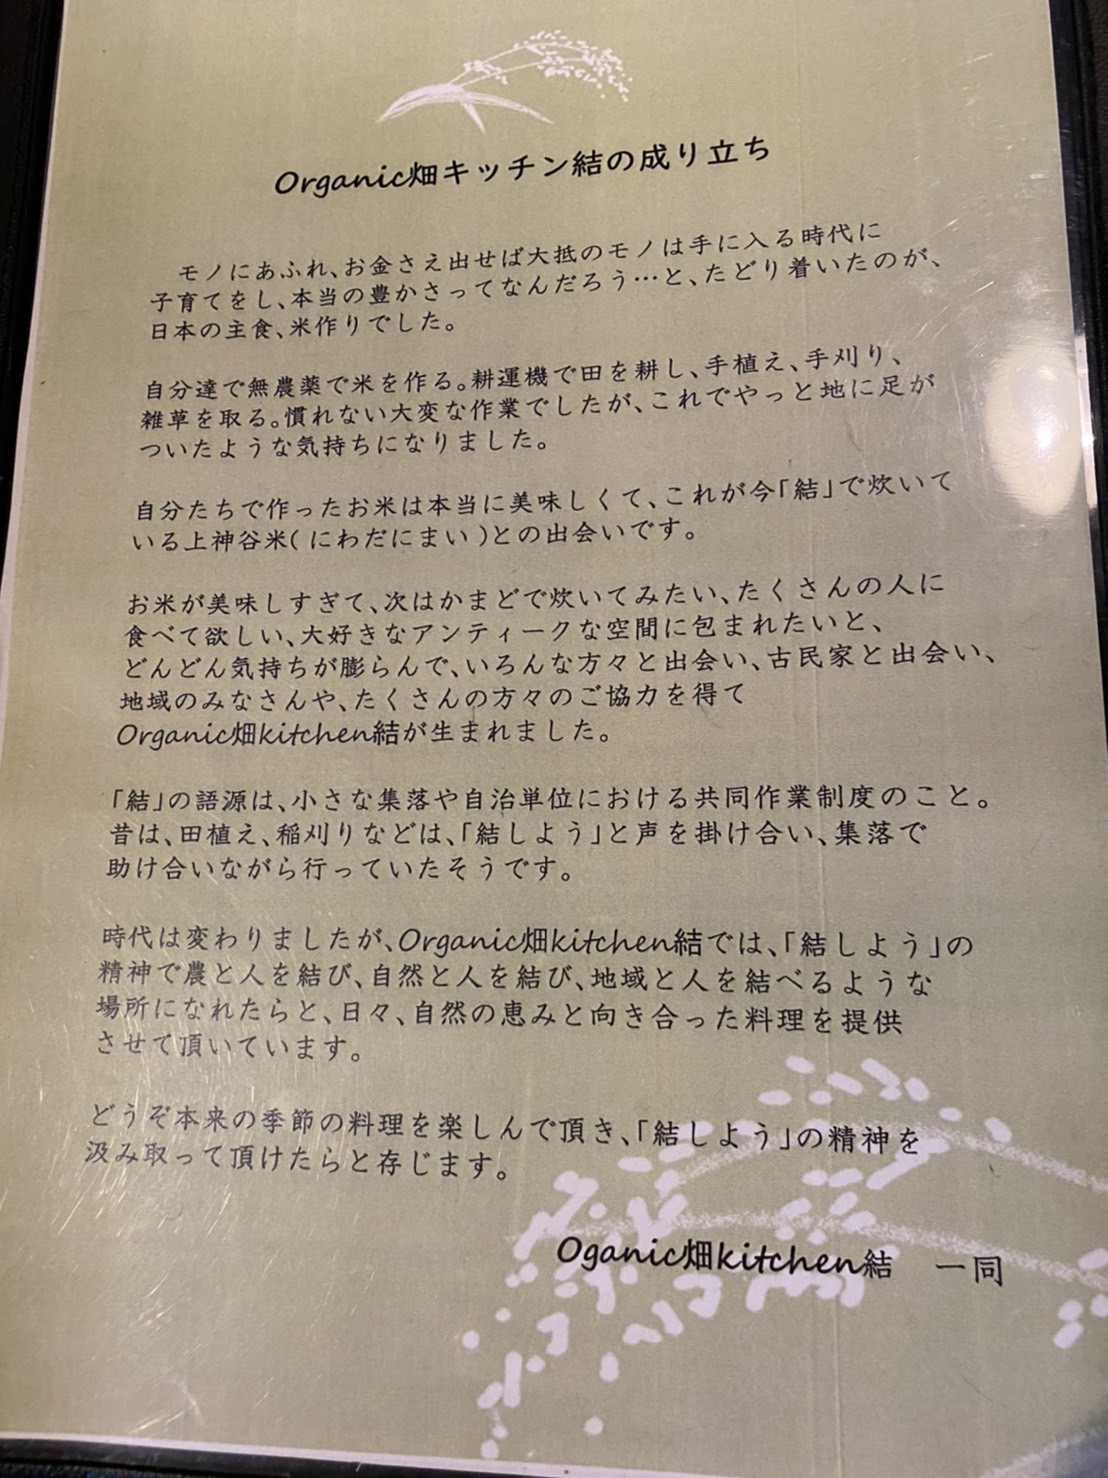 Organic畑キッチン結の成り立ち
モノにあふれ、お金さえ出せば大抵のモノは手に入る時代に
子育てをし、本当の豊かさってなんだろう…と、たどり着いたのが、
日本の主食、米作りでした。
自分達で無農薬で米を作る。耕運機で田を耕し、手植え、手刈り、
雑草を取る。慣れない大変な作業でしたが、これでやっと地に足が
ついたような気持ちになりました。
自分たちで作ったお米は本当に美味しくて、これが今「結」で炊いて
いる上神谷米(にわだにまい)との出会いです。
お米が美味しすぎて、次はかまどで炊いてみたい、たくさんの人に
食べて欲しい、大好きなアンティークな空間に包まれたいと、
どんどん気持ちが膨らんで、いろんな方々と出会い、古民家と出会い、
地域のみなさんや、たくさんの方々のご協力を得て
Organic畑kitchen結が生まれました。
「結」の語源は、小さな集落や自治単位における共同作業制度のこと。
昔は、田植え、稲刈りなどは、「結しよう」と声を掛け合い、集落で
助け合いながら行っていたそうです。
時代は変わりましたが、Organic畑kitchen結では、「結しよう」の
精神で農と人を結び、自然と人を結び、地域と人を結べるような
場所になれたらと、日々、自然の恵みと向き合った料理を提供
させて頂いています。
どうぞ本来の季節の料理を楽しんで頂き、「結しよう」の精神を
汲み取って頂けたらと存じます。
Oganic畑kitchen結 一同